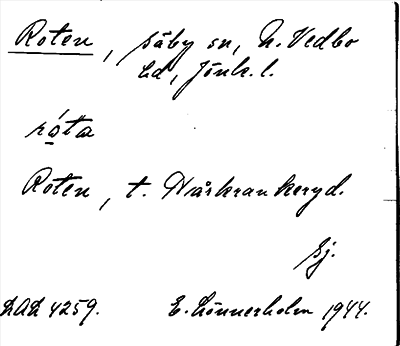 Roten, Säby sn, N. Vedbo
hd, Jönk. l.
ró̱ta
Roten, t. Narkrankeryd.
Sj.
LAL 4259. E. Lönnerholm 1944.